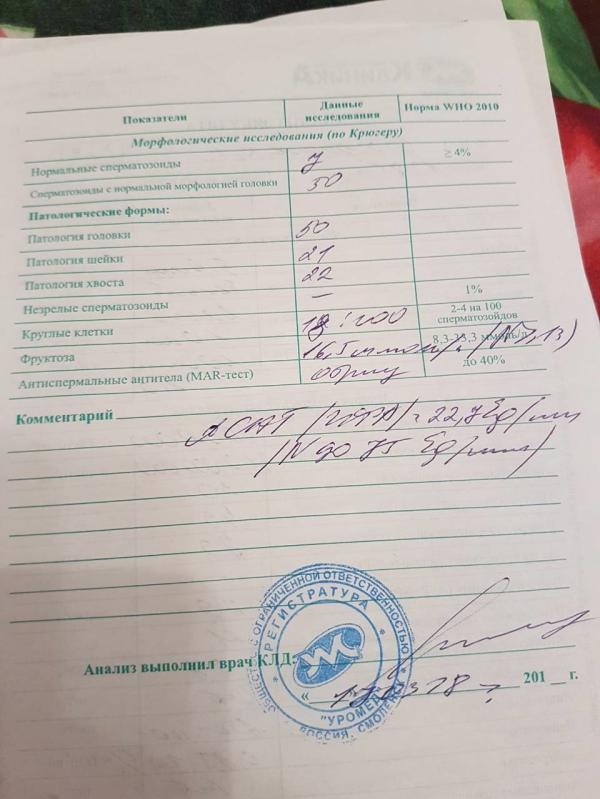 Показатели Данные исследования Норма WHO 2010
Морфологические исследования (по Крюгеру)
Нормальные сперматозоиды 7 ≥ 4%
Сперматозоиды с нормальной морфологией головки 50
Патологические формы:
Патология головки 50
Патология шейки 21
Патология хвоста 22
Незрелые сперматозоиды — 1%
Круглые клетки : 100 2-4 на 100 сперматозоидов
Фруктоза 16,5 ммоль/л 8,3-13,3 ммоль/л
Антиспермальные антитела (MAR-тест) до 40%
Комментарий АСАТ = 22,7 Ед/мл
(N до 75 Ед/мл)
ОБЩЕСТВО С ОГРАНИЧЕННОЙ ОТВЕТСТВЕННОСТЬЮ
РЕГИСТРАТУРА
"УРОМЕД"
РОССИЯ, СМОЛЕНСК
Анализ выполнил врач КЛД:
« 201 __ г.